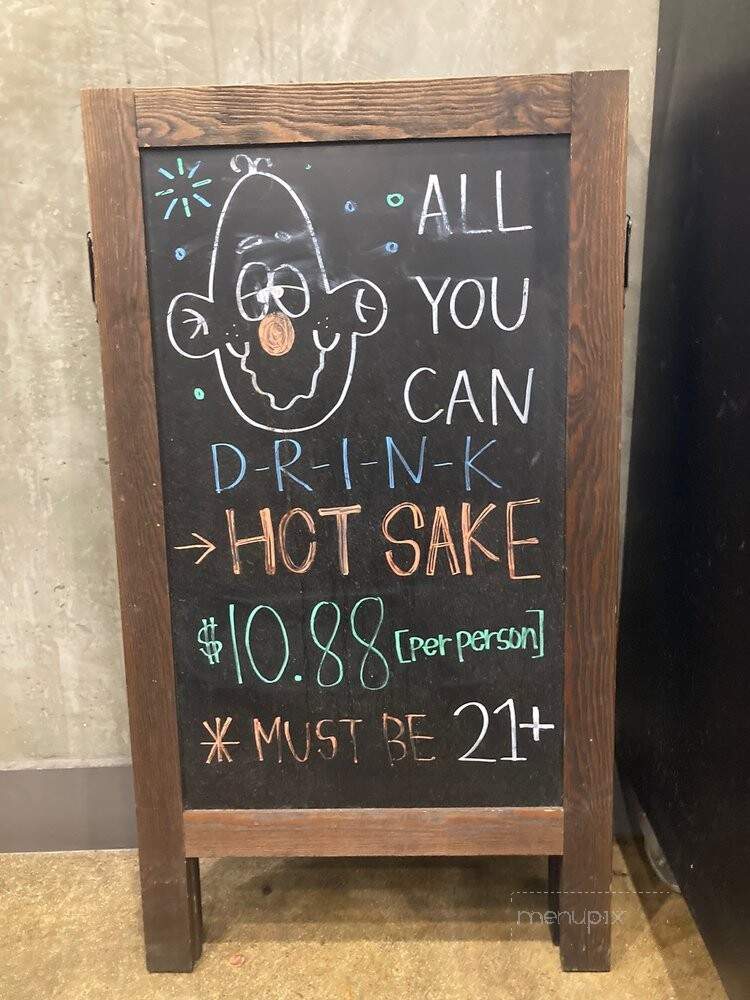 ALL
YOU
CAN
D-R-I-N-K
→ HOT SAKE
$10.88 [per person]
* MUST BE 21+
menupix